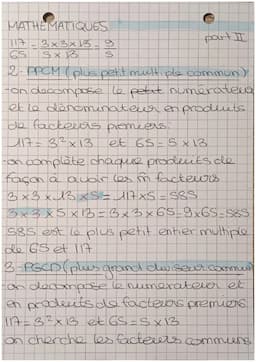 MATHÉMATIQUES
part II
117 = 3x3x13 = 9
65 5x13 5
2- PPCM (plus petit multiple commun)
-on décompose le petit numérateur
et le dénominateur en produits
de facteurs premiers.
117 = 3² x 13 et 65 = 5 x 13
-on complète chaque produits de
façon à avoir les m̂ facteurs
3 x 3 x 13 x 5 = 117 x 5 = 585
3 x 3 x 5 x 13 = 3 x 3 x 65 = 9 x 65 = 585
585 est le plus petit entier multiple
de 65 et 117
3- PGCD (plus grand diviseur commun)
-on décompose le numérateur et
en produits de facteurs premiers
117 = 3² x 13 et 65 = 5 x 13
on cherche les facteurs communs